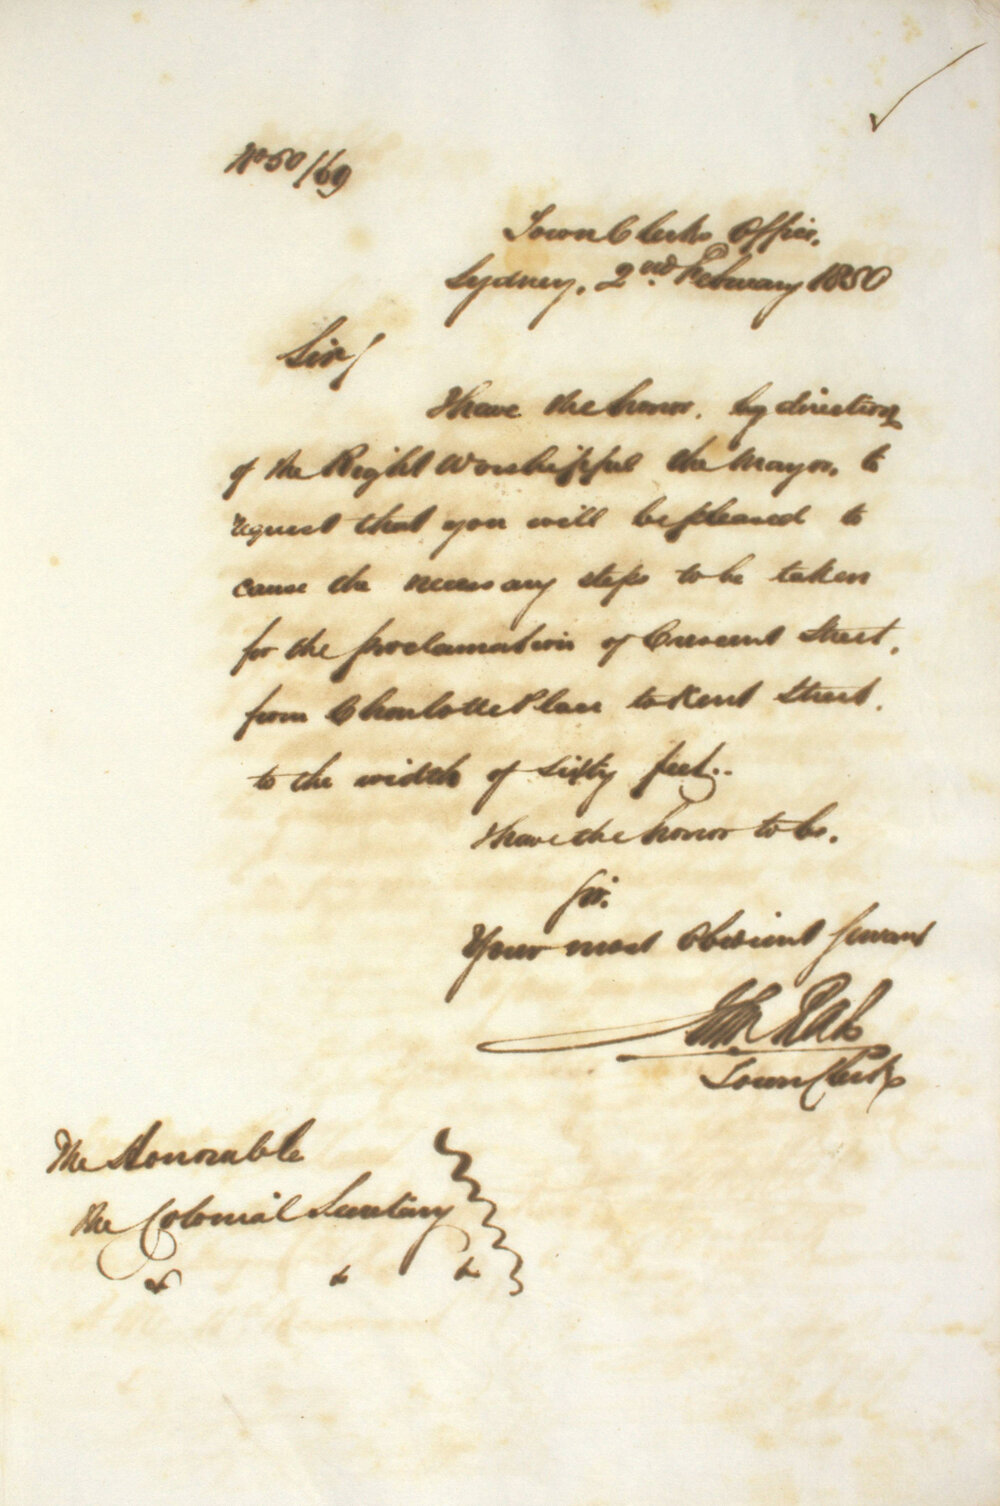 No 50/69
Town Clerks Office,
Sydney, 2nd February 1850
Sir,
I have the honor, by direction
of the Right Worshipful the Mayor, to
request that you will be pleased to
cause the necessary steps to be taken
for the proclamation of Crescent Street,
from Charlotte Place to Kent Street,
to the width of sixty feet..
I have the honor to be,
Sir,
Your most obedient servant
Town Clerk
The Honorable
the Colonial Secretary
&c &c &c